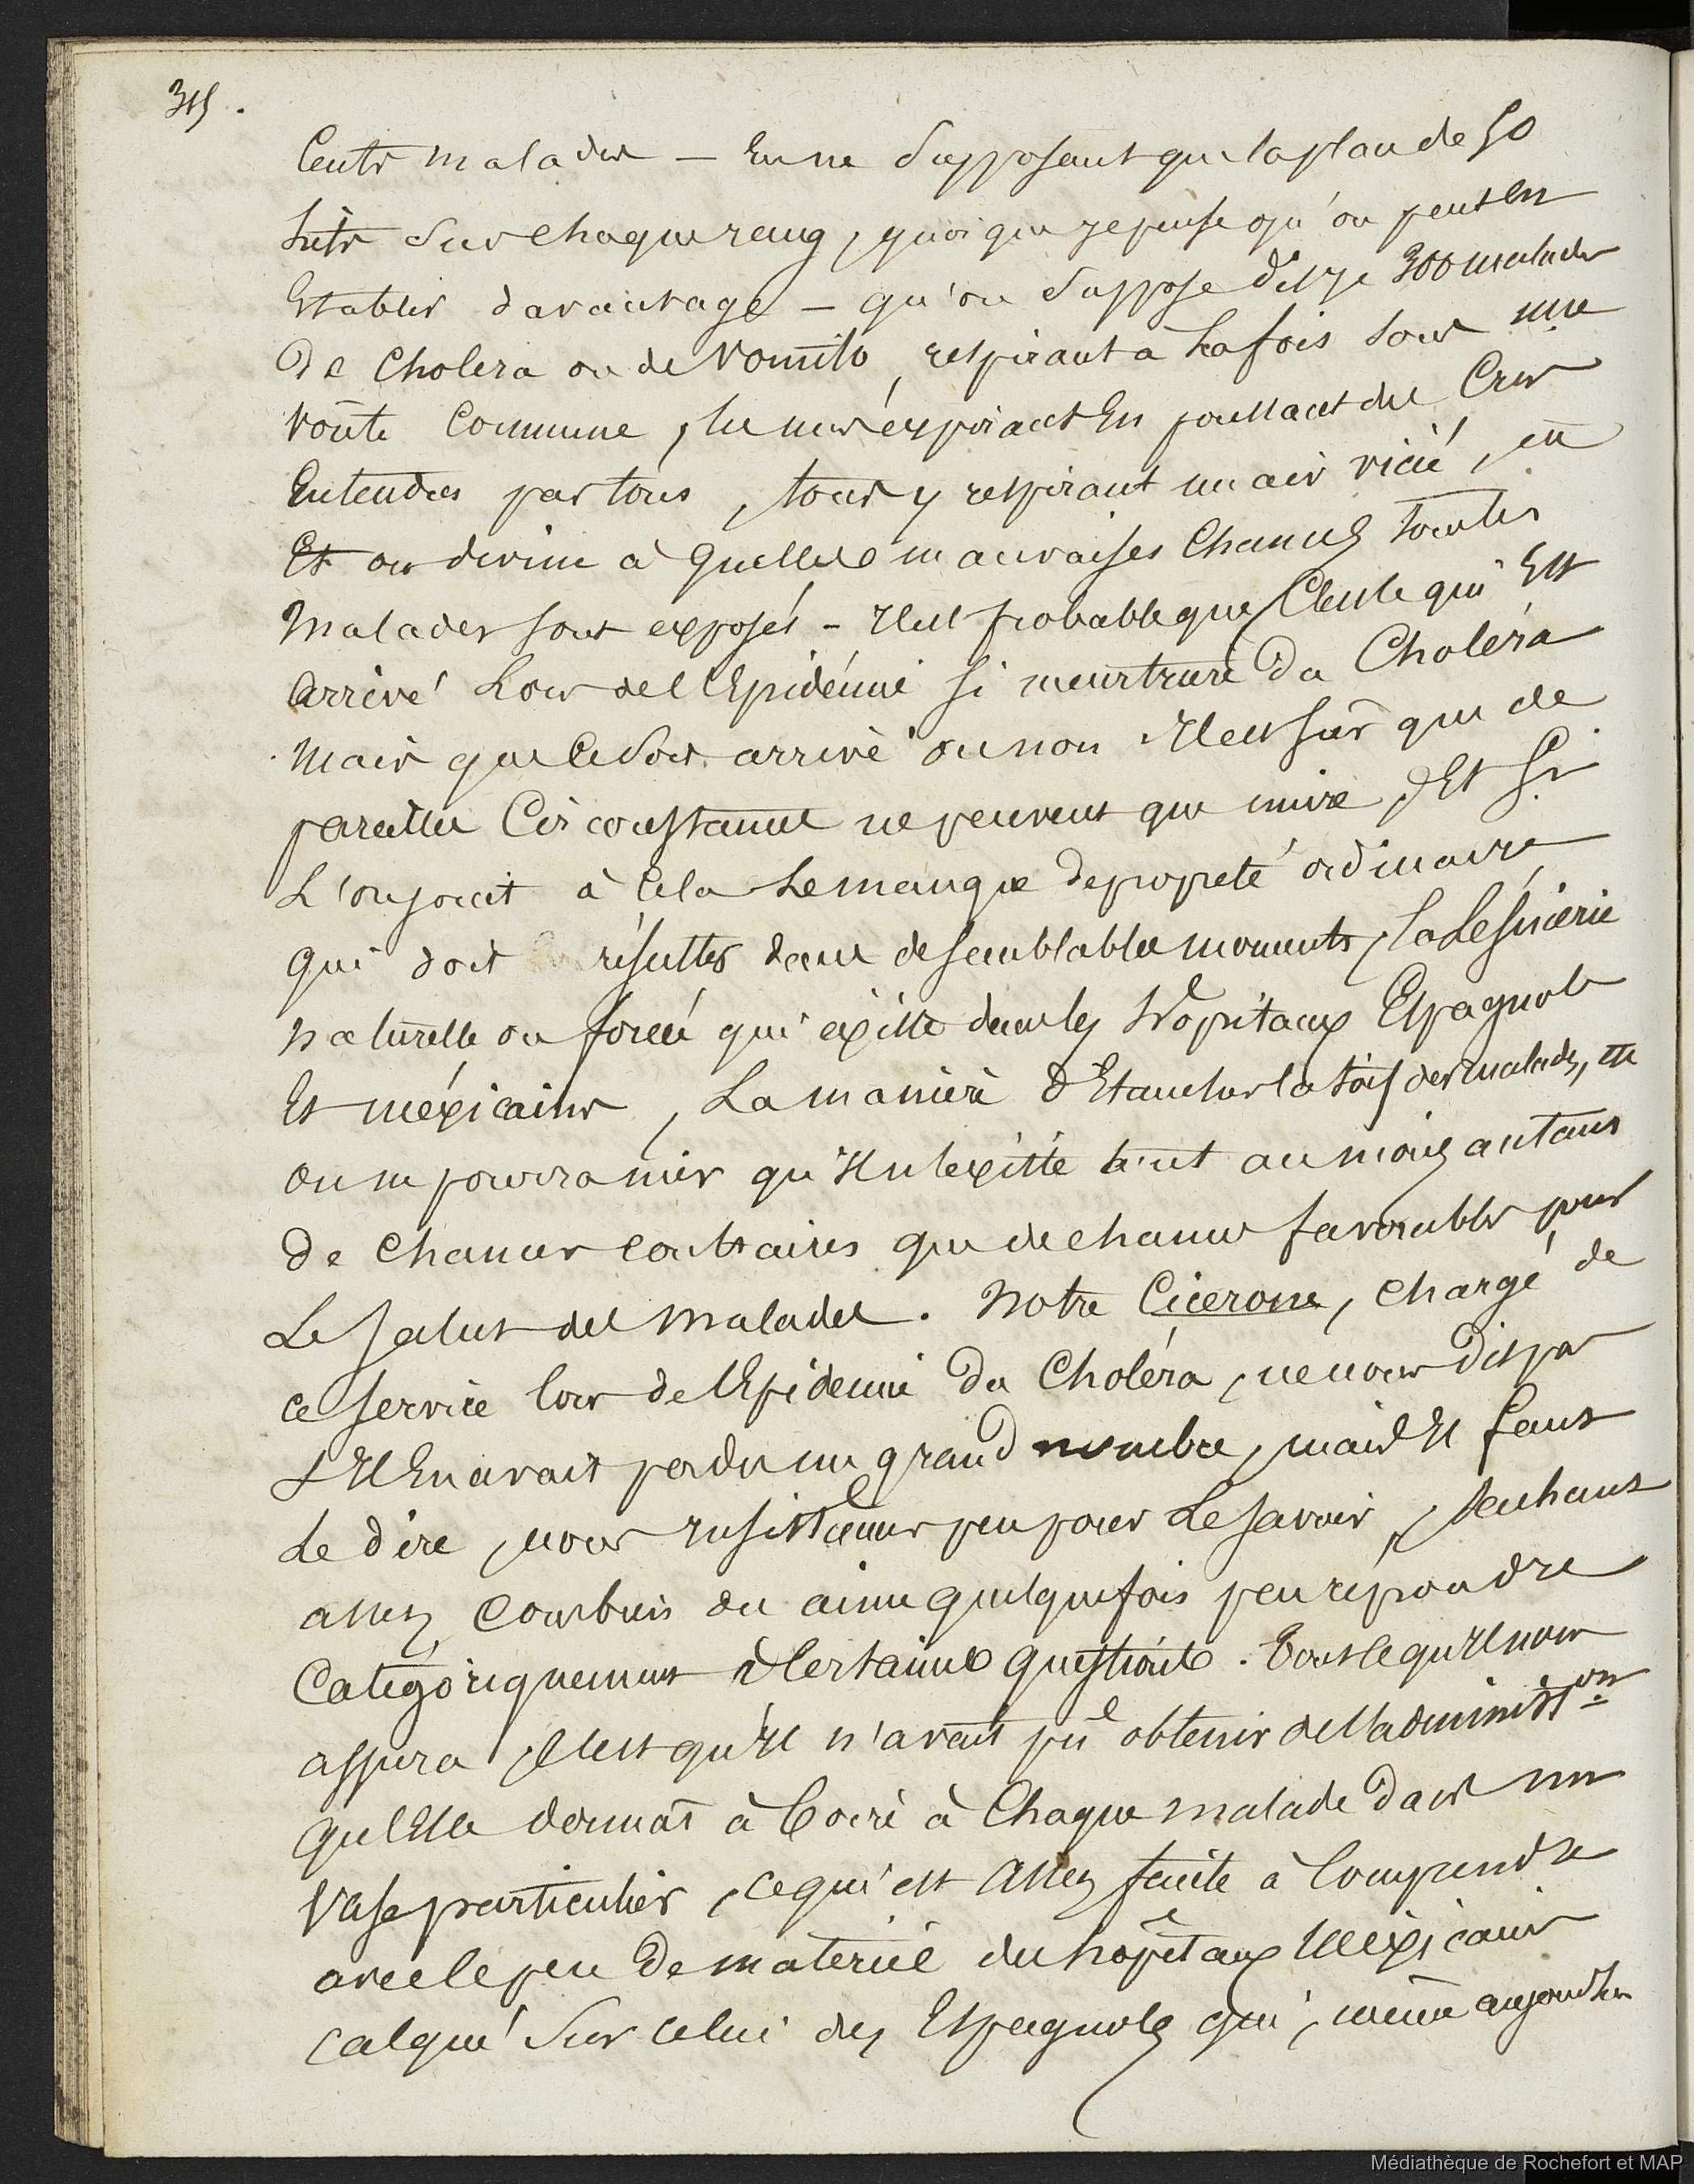 315.
Cents malades – En ne supposant que la place de 50
lits sur chaque rang, quoique je pense qu'on peut en
Etablir davantage – qu'on suppose dis-je 300 malades
De Cholera ou de Vomito, respirant à La fois sous une
Voûte Commune, les uns expirant En poussant des Cris
Entendus par tous, tous y respirant un air vicié,
Et on devine à quelles mauvaises Chances tous les
Malades sont exposés – Il est probable que C'est ce qui Est
Arrivé Lors de l'Epidémie si meurtrière Du Choléra
Mais que ce soit arrivé ou non Il est sûr que de
pareilles Circonstances ne peuvent que nuire, Et si
L'on joint à Cela Le manque de propreté ordinaire
qui doit résulter dans de semblables moments, La Lésinerie
naturelle ou forcée qui existe dans les Hôpitaux Espagnols
Et méxicains, La manière d'Etancher la soif des malades,
on ne pourra nier qu'Il n'existe tout au moins autant
De Chances contraires que de chances favorables pour
Le Salut des Malades. Notre Cicerone, chargé de
ce service lors de l'Epidemie Du Choléra, ne nous dit pas
s'Il En avait perdu un grand nombre, mais Il faut
Le dire, nous insistames peu pour Le savoir, sachant
assez, Combien on aime quelquefois peu répondre
Catégoriquement à Certaines questions. Tout ce qu'Il nous
assura, C'est qu'Il n'avait pû obtenir de l'administon
qu'Elle donnat à boire à Chaque malade Dans un
Vase particulier, ce qui est assez facile à Comprendre
avec le peu De matériel des hôpitaux Mexicains
calqué Sur celui des Espagnols qui, même aujourd'hui
Médiathèque de Rochefort et MAP